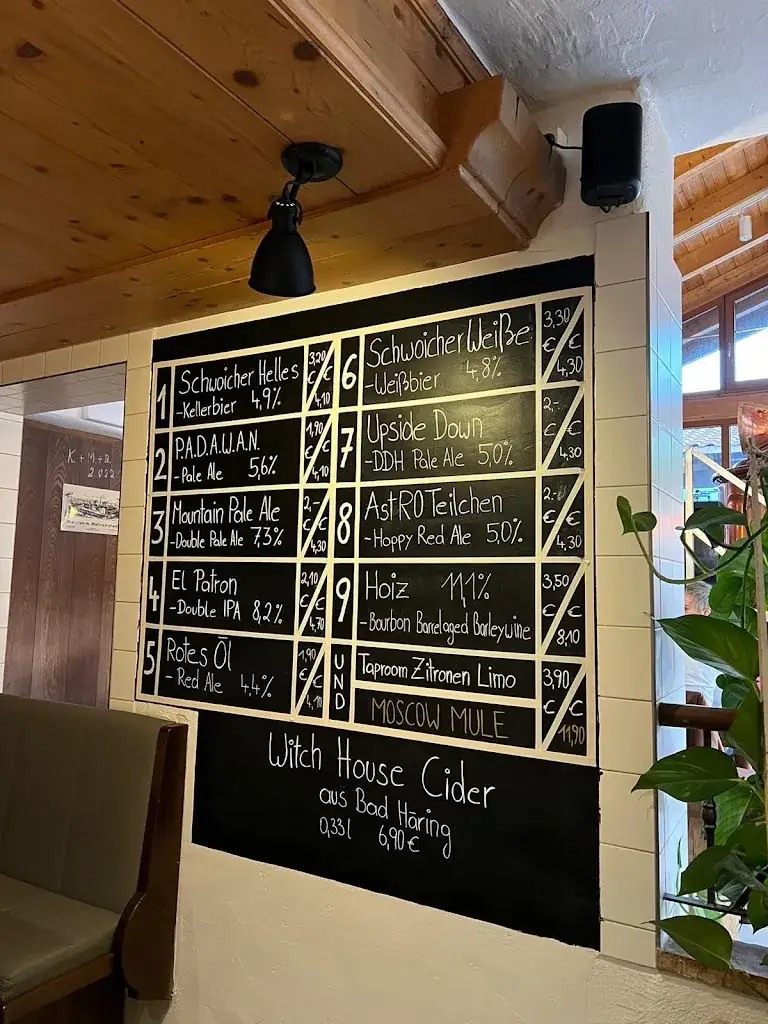 1
Schwoicher Helles
-Kellerbier 4,9%
3,20
€ €
4,10
2
P.A.D.A.W.A.N.
-Pale Ale 5,6%
1,90
€ €
4,10
3
Mountain Pale Ale
-Double Pale Ale 7,3%
2,-
€ €
4,30
4
El Patron
-Double IPA 8,2%
2,10
€ €
4,70
5
Rotes Öl
-Red Ale 4,4%
1,90
€ €
4,10
6
Schwoicher Weiße
-Weißbier 4,8%
3,30
€ €
4,30
7
Upside Down
-DDH Pale Ale 5,0%
2,-
€ €
4,30
8
AstROTeilchen
-Hoppy Red Ale 5,0%
2,-
€ €
4,30
9
Hoiz 11,1%
-Bourbon Barrelaged Barleywine
3,50
€ €
8,10
UND
Taproom Zitronen Limo
MOSCOW MULE
3,90
€ €
11,90
Witch House Cider
aus Bad Häring
0,33l 6,90€
K+M+B
2022